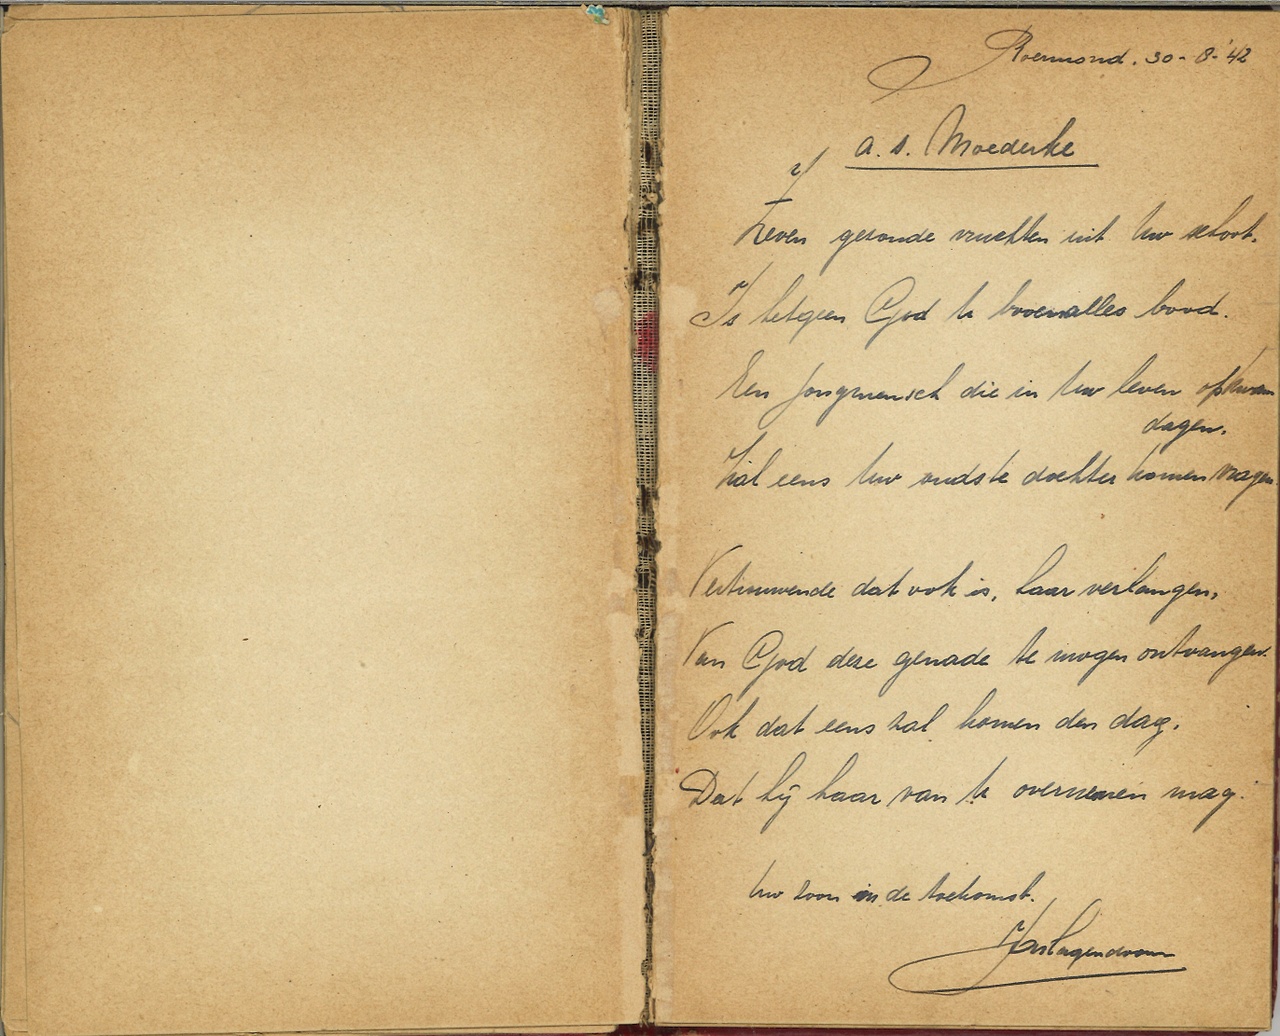 Roermond. 30-8-'42
a. s. Moederke
Zeven gezonde vruchten uit Uw schoot.
Is hetgeen God U bovenalles bood.
Een Jongmensch die in Uw leven op kwam
dagen.
Zal eens Uw oudste dochter komen vragen
Vertrouwende dat ook is, haar verlangen,
Van God deze genade te mogen ontvangen.
Ook dat eens zal komen den dag.
Dat hij haar van U overnemen mag.
Uw zoon in de toekomst.